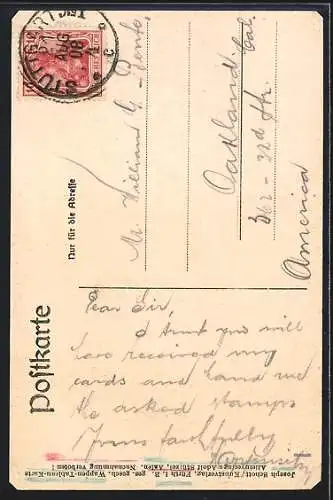 STUTTGART
AUG
08
C
Postkarte
Nur für die Adresse
Mr. William G.
Oakland Cal
362 - 32d Str.
America
Dear Sir,
I trust you will
have received my
cards and send me
the asked stamps
Yours faithfully
Joseph Schott, Kunstverlag, Fürth i. B. ges. gesch. Wappen-Tableau-Karte
Alleinvertrieb Adolf Stützel, Aalen. Nachahmung Verboten!